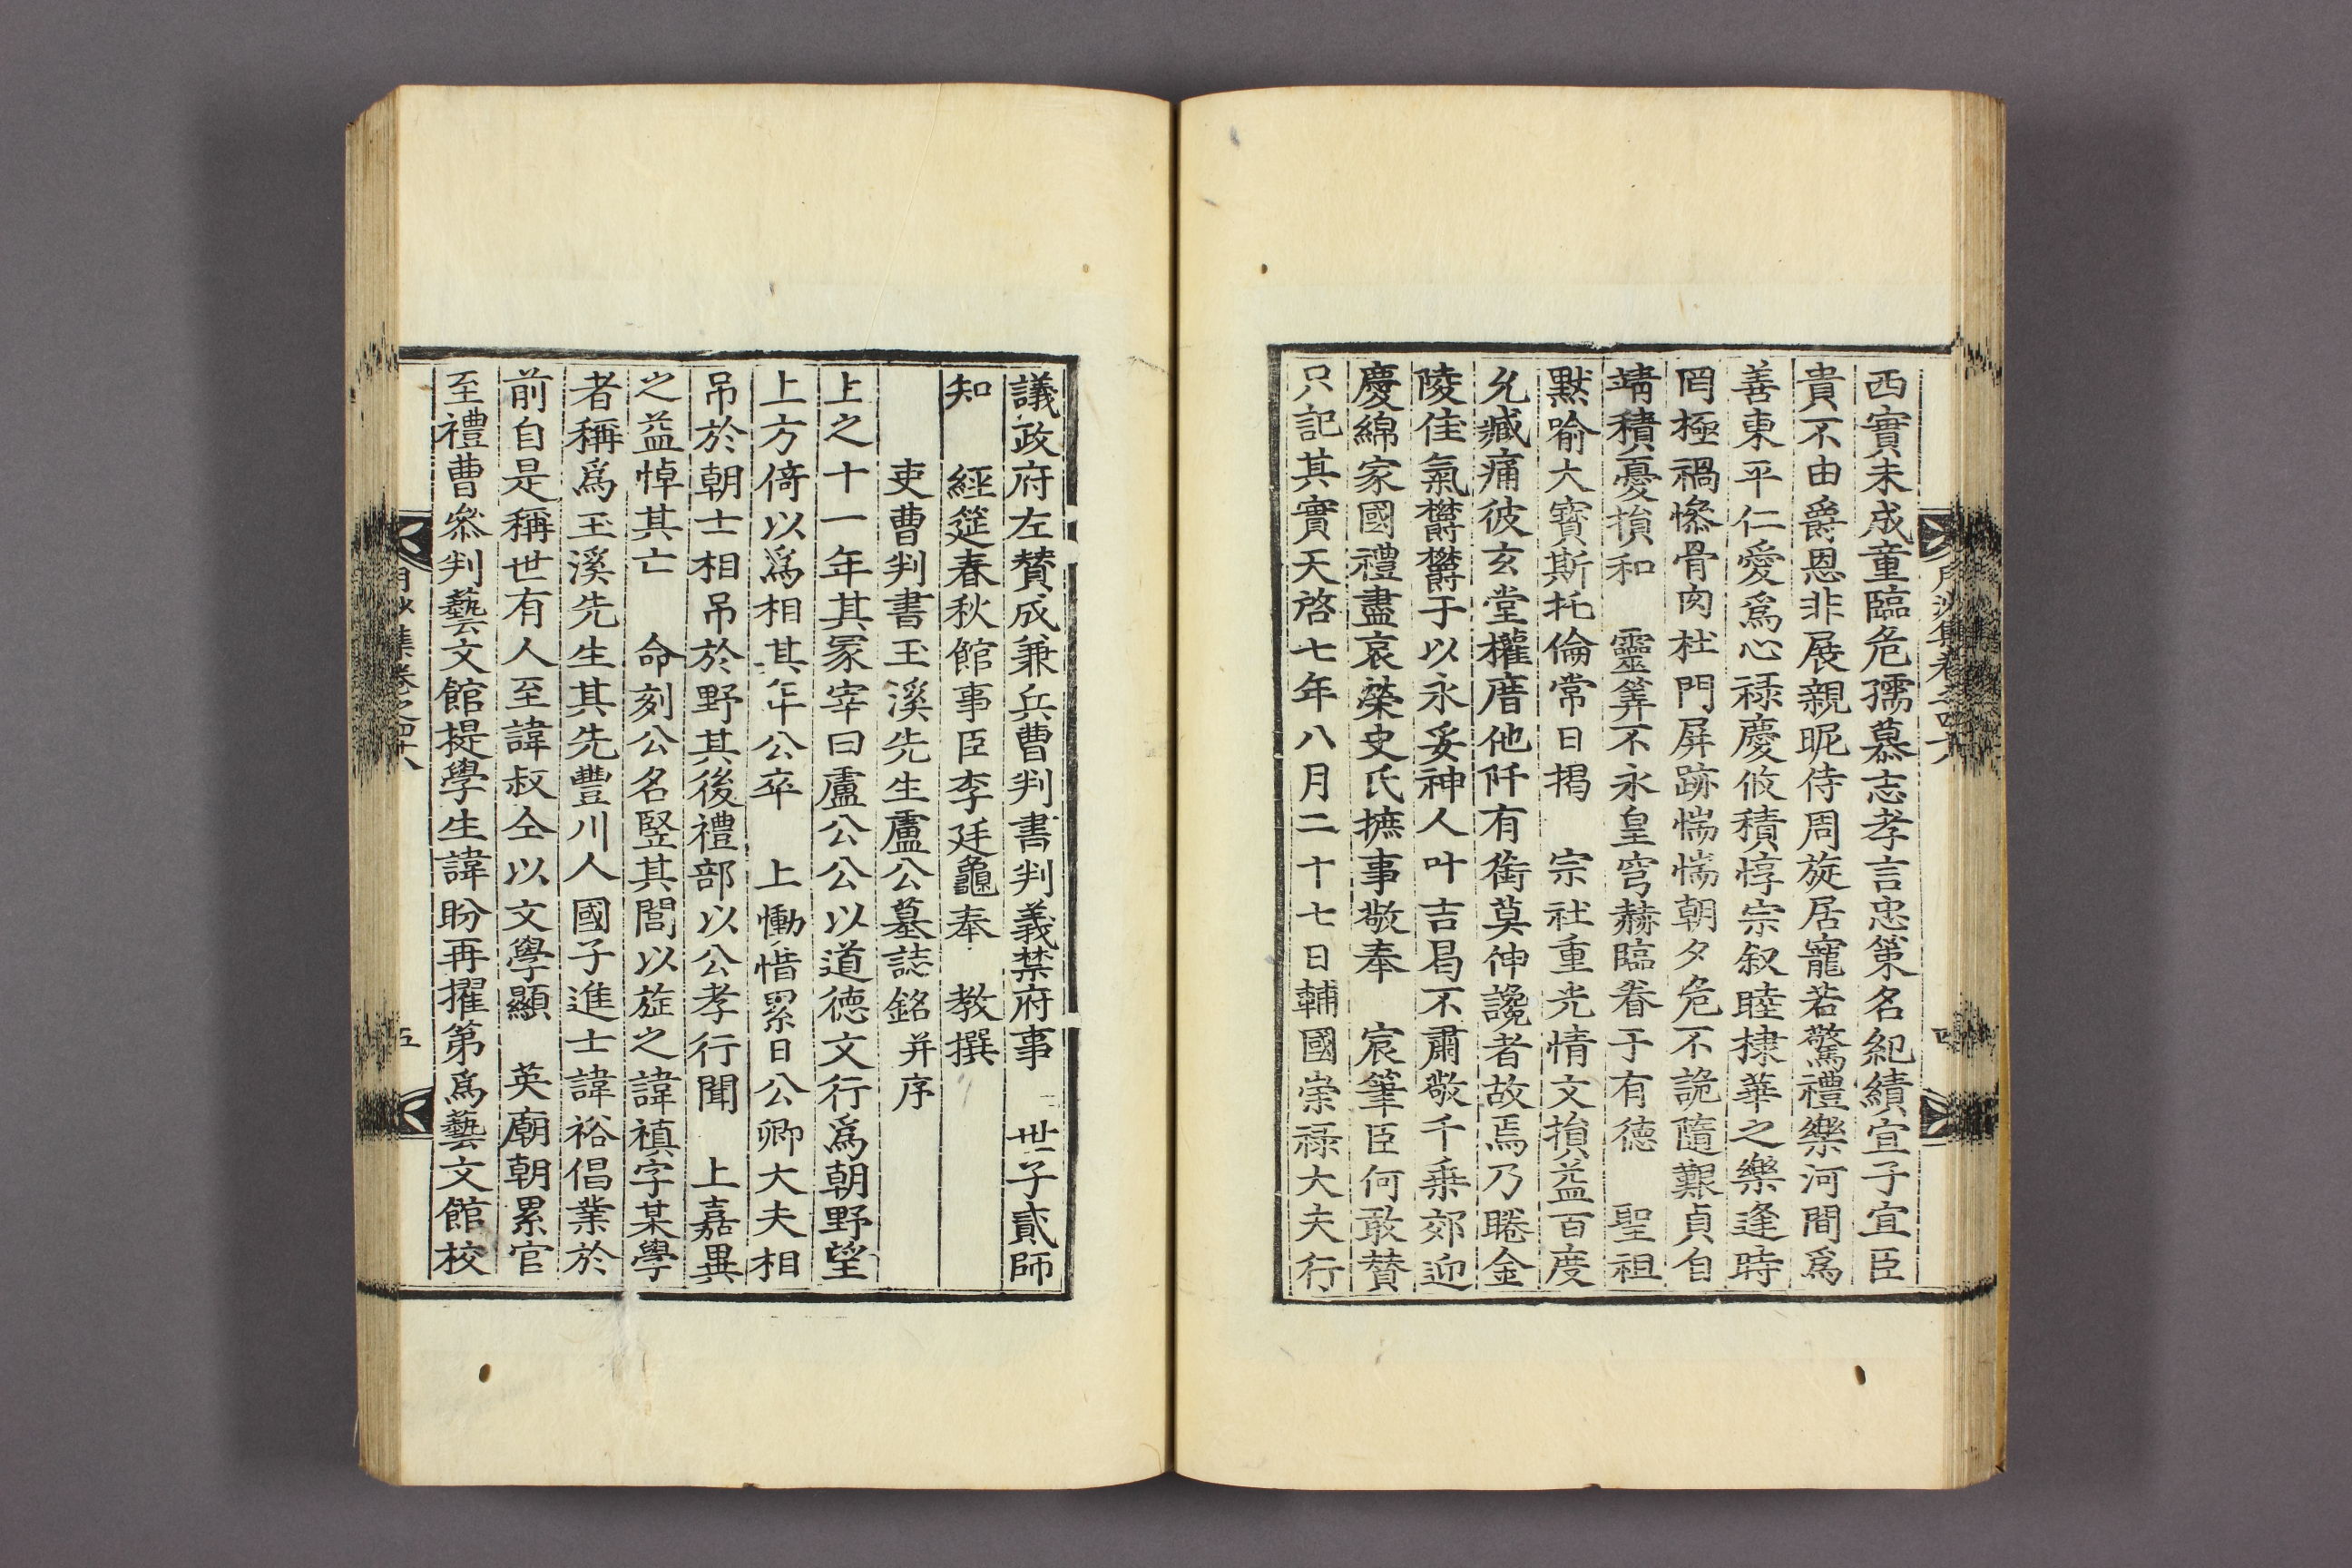 西實未成童臨危孺慕志孝言忠策名紀績宜子宜臣
貴不由爵恩非展親昵侍周旋居寵若驚禮樂河間爲
善東平仁愛爲心祿慶攸積惇宗叙睦棣華之樂逢時
罔極禍慘骨肉杜門屛跡惴惴朝夕危不詭隨艱貞自
靖積憂損和 靈筭不永皇穹赫臨眷于有德 聖祖
默喩大寶斯托倫常日揭 宗社重光情文損益百度
允臧痛彼玄堂權厝他阡有銜莫伸讒者故焉乃睠金
陵佳氣欝欝于以永妥神人叶吉曷不肅敬千乘郊迎
慶綿家國禮盡哀榮史氏摭事敬奉 宸筆臣何敢贊
只記其實天啓七年八月二十七日輔國崇祿大夫行
議政府左贊成兼兵曹判書判義禁府事 世子貳師
知 經筵春秋館事臣李廷龜奉 敎撰
吏曹判書玉溪先生盧公墓誌銘 并序
上之十一年其冢宰曰盧公公以道德文行爲朝野望
上方倚以爲相其年公卒 上慟惜累日公卿大夫相
吊於朝士相吊於野其後禮部以公孝行聞 上嘉異
之益悼其亡 命刻公名竪其閭以㫌之諱禛字某學
者稱爲玉溪先生其先豐川人國子進士諱裕倡業於
前自是稱世有人至諱叔仝以文學顯 英廟朝累官
至禮曹叅判藝文館提學生諱昐再擢第爲藝文館校
五